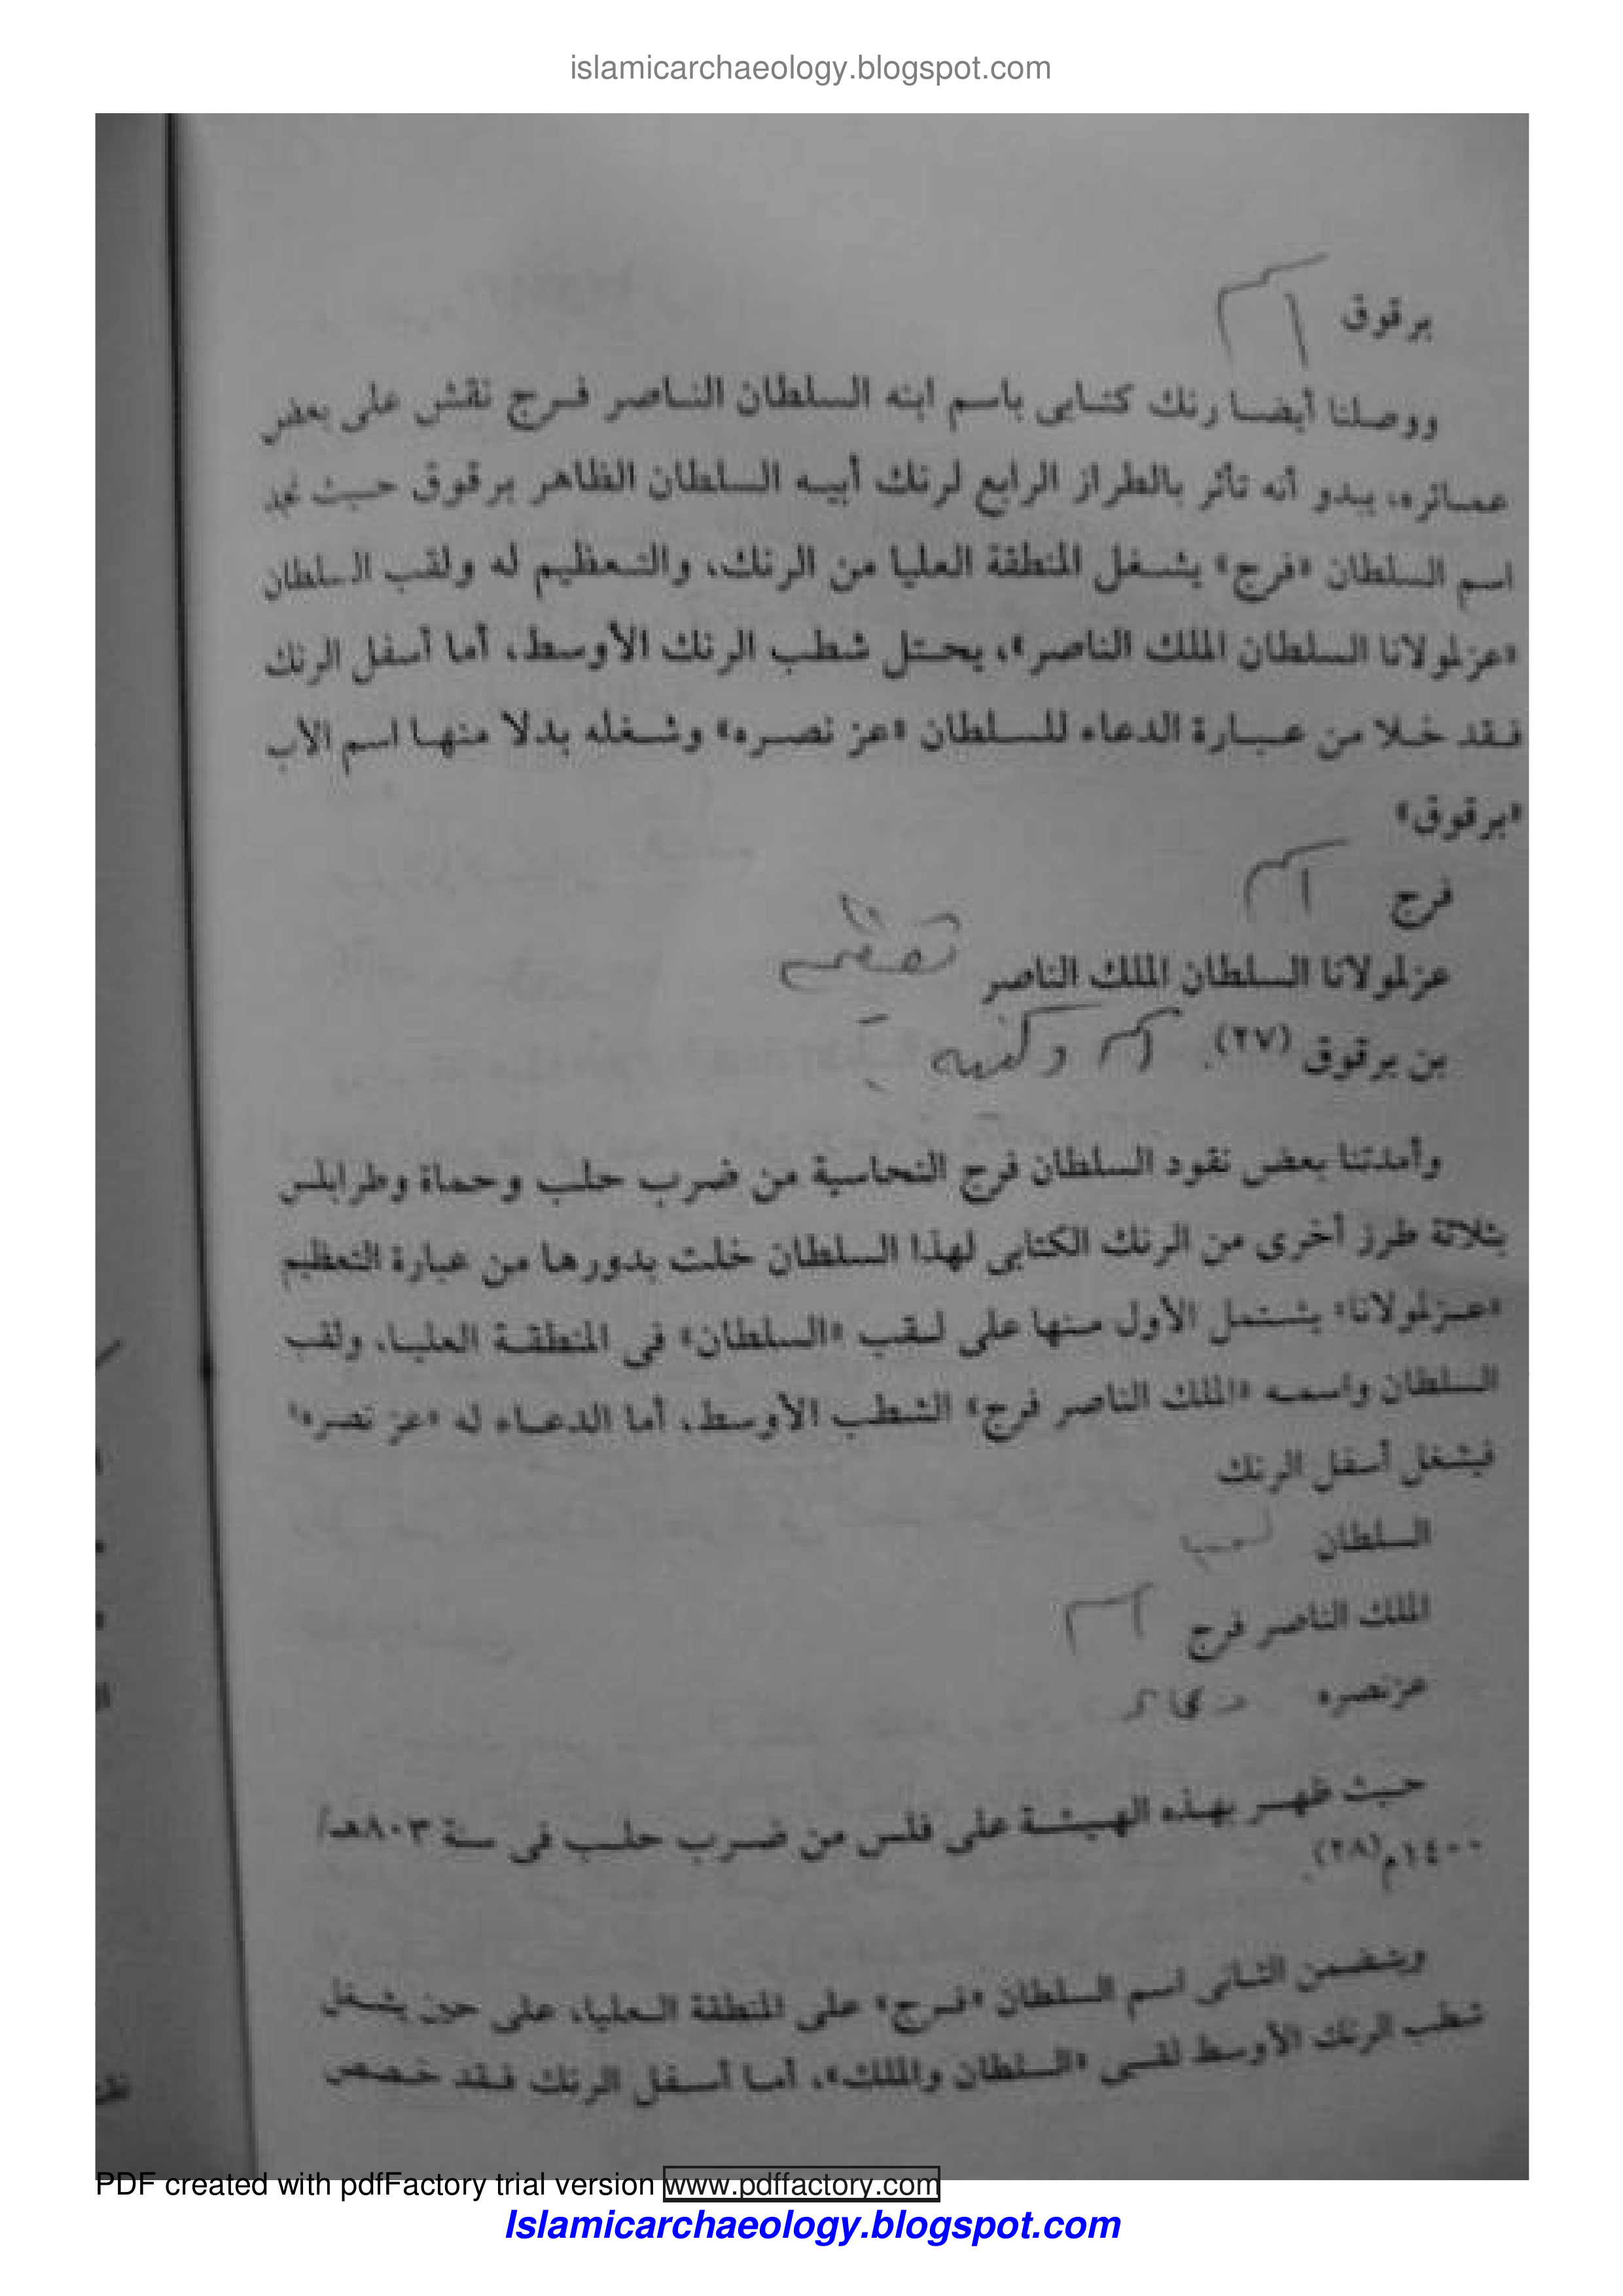 islamicarchaeology.blogspot.com
برقوق اسم
ووصلنا أيضا رنك كتابى باسم ابنه السلطان الناصر فرج نقش على بعض
عمائره، يبدو أنه تأثر بالطراز الرابع لرنك أبيه السلطان الظاهر برقوق حيث نجد
اسم السلطان «فرج» يشغل المنطقة العليا من الرنك، والتعظيم له ولقب السلطان
«عزلمولانا السلطان الملك الناصر»، يحتل شطب الرنك الأوسط، أما أسفل الرنك
فقد خلا من عبارة الدعاء للسلطان «عز نصره» وشغله بدلا منها اسم الأب
«برقوق»
فرج اسم
عزلمولانا السلطان الملك الناصر تعظيم
بن برقوق (٢٧). اسم وكنيه
وأمدتنا بعض نقود السلطان فرج النحاسية من ضرب حلب وحماة وطرابلس
بثلاثة طرز أخرى من الرنك الكتابى لهذا السلطان خلت بدورها من عبارة التعظيم
«عزلمولانا» يشتمل الأول منها على لقب «السلطان» فى المنطقة العليا، ولقب
السلطان واسمه «الملك الناصر فرج» الشطب الأوسط، أما الدعاء له «عز نصره»
فيشغل أسفل الرنك
السلطان لقب
الملك الناصر فرج اسم
عزنصره دعاء
حيث ظهر بهذه الهيئة على فلس من ضرب حلب فى سنة ٨٠٣هـ/
١٤٠٠م(٢٨).
ويتضمن الثانى اسم السلطان «فرج» على المنطقة العليا، على حين يشغل
شطب الرنك الأوسط لقبى «السلطان والملك»، أما أسفل الرنك فقد خصص
PDF created with pdfFactory trial version www.pdffactory.com
Islamicarchaeology.blogspot.com